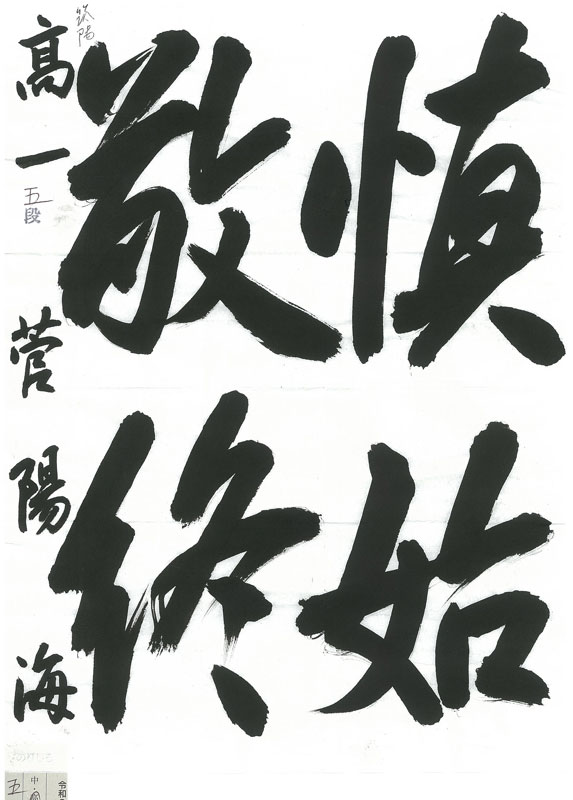 慎始
敬終
高一 菅陽海
五段
筑陽
五
中・高
令和